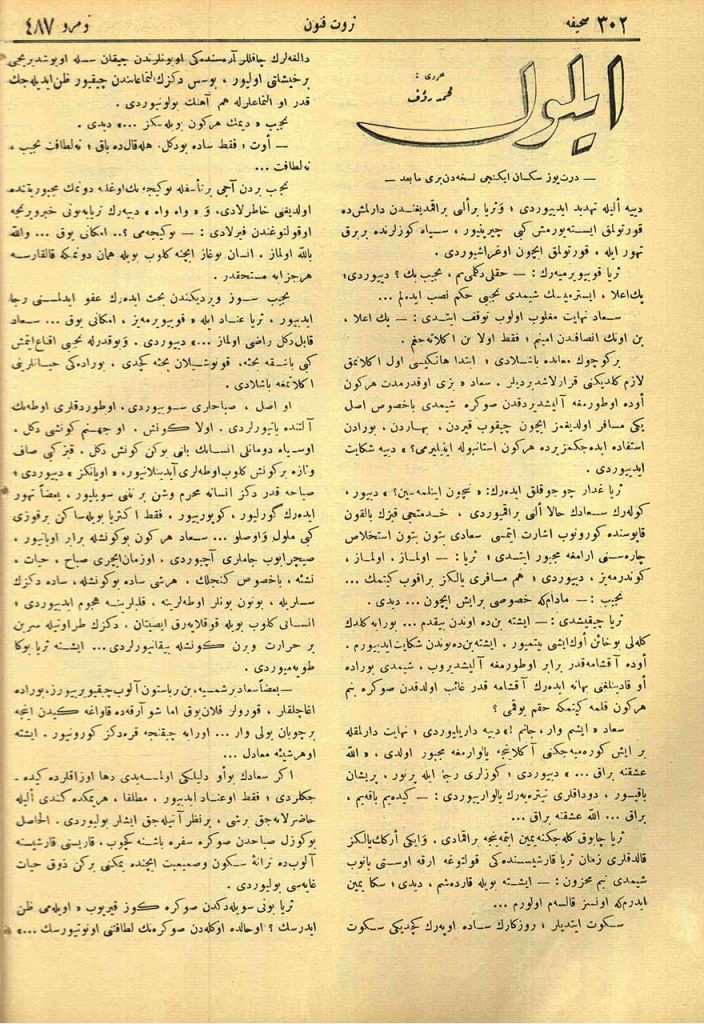 صحیفه ٣٠٢
ثروت فنون
نومرو ٤٨٧
ایلول
محرری :
محمد رؤف
— درت یوز سكسان ایكنجی نسخه‌دن بری مابعد —
دییه ألیله تهدید ایدییوردی ؛ وثریا برألنی براقمدیغندن دارلمش‌ده
قورتولمق ایسته‌یورمش كبی چیرپنیور ، سیاه كوزلرنده بربرق
تهور ایله ، قورتولمق ایچون اوغراشیوردی .
ثریا قویویرمیه‌رك : — حقلی دكلمی‌یم ، نجیب بك ؟ دییوردی ؛
پك‌اعلا ، ایسترمیسك شیمدی نجیبی حكم نصب ایده‌لم ...
سعاد نهایت مغلوب اولوب توقف ایتدی : — پك اعلا ،
بن اونك انصافندن امینم ؛ فقط اولا بن اكلاته‌جغم .
بركوچوك معانده باشلادی ؛ ابتدا هانكیسی اول اكلاتمق
لازم كلدیكنی قرارلاشدیردیلر . سعاد « بزی اوقدرمدت هركون
أوده اوطورمغه آلیشدیردقدن صوكره شیمدی باخصوص اصل
یكی مسافر اولدیغمز ایچون چیقوب قیردن ، بهاردن ، بورادن
استفاده ایده‌جكمز یرده هركون استانبوله اینیلیرمی ؟ » دییه شكایت
ایدییوردی .
ثریا غدار چوجوقلق ایده‌رك : « نیچون اینلمه‌سین ؟ » دییور ،
كوله‌رك سعادك حالا ألنی براقمیوردی . خدمتجی قیزك بالقون
قاپوسنده كورونوب اشارت ایتمسی سعادی بتون بتون استخلاص
چاره‌سنی آرامغه مجبور ایتدی ؛ ثریا : — اولماز ، اولماز ،
كوندرمه‌یز ، دییوردی ؛ هم مسافری یالكز براقوب كیتمك ...
نجیب : — مادام‌كه خصوصی برایش ایچون ... دیدی .
ثریا چیقیشدی : — ایشته بن‌ده اوندن بیقدم ... بورایه كلدك
كله‌لی بوخائن أوك‌ایشی بیتمیور . ایشته‌بن‌ده‌بوندن شكایت‌ایدییورم .
أوده آقشامه‌قدر برابر اوطورمغه آلیشدیروب ، شیمدی بوراده
أو قادینلغنی بهانه ایده‌رك آقشامه قدر غائب اولدقدن صوكره بنم
هركون قلمه كیتمكه حقم یوقمی ؟
سعاد « ایشم وار ، جانم ! » دییه داریلییوردی ؛ نهایت دارلمقله
بر ایش كوره‌میه‌جكنی آكلاینجه یالوارمغه مجبور اولدی ، « الله
عشقنه براق ... » دییوردی ؛ كوزلری رجا ایله پرنور ، پریشان
باقیور ، دوداقلری تیتره‌یه‌رك یالوارییوردی : — كیده‌یم باقه‌یم ،
براق ... الله عشقنه براق ...
ثریا چابوق كله‌جكنه‌یمین ایتمه‌ینجه براقمادی . وایكی أركك‌یالكز
قالدقلری زمان ثریا قارشیسنده‌كی قولتوغه آرقه اوستی یاتوب
شیمدی نیم محزون : — ایشته بویله قارده‌شم ، دیدی ؛ سكا یمین
ایدرم‌كه اونسز قالسه‌م اولورم ...
سكوت ایتدیلر ؛ روزكارك ساده اوپه‌رك كچدیكی سكوت
دالغه‌لرك چاقللر آره‌سنده‌كی اویونلرندن چیقان سسله اویوشدیریجی
برخیشلتی اولیور ، بوسس دكزك‌التماعاتندن چیقیور ظن‌ایدیله‌جك
قدر او التماعاتله هم آهنك بولونیوردی .
نجیب « دیمك هركون بویله‌سكز ... » دیدی .
— أوت ؛ فقط ساده بودكل . هله‌قال‌ده باق ؛ نه‌لطافت نجیب ،
نه‌لطافت ...
نجیب بردن آجی برتأسفله بوكیجه‌مك‌اوغله دونمك مجبوریتنده
اولدیغنی خاطرلادی . و « واه واه » دییه‌رك ثریایه‌بونی خبرویرنجه
اوقولتوغندن فیرلادی : — بوكیجه‌می ؟.. امكانی یوق ... والله
بالله اولماز . انسان بوغاز ایچنه كلوب بویله همان دونمكه قالقارسه
هرجزایه مستحقدر .
نجیب سوز ویردیكندن بحث ایده‌رك عفو ایدلمسنی رجا
ایدییور ، ثریا عناد ایله « قویویرمه‌یز ، امكانی یوق ... سعاد
قابل‌دكل راضی اولماز ... » دییوردی . وبوقدرله نجیبی اقناع‌ایتمش
كبی باشقه بحثه ، قونوشیلان بحثه كچدی ، بوراده‌كی حیاتلرینی
اكلاتمغه باشلادی .
او اصل ، صباحلری سوییوردی . اوطوردقلری اوطه‌نك
آلتنده یاتیورلردی . اولا كونش . او جهنم كونشی دكل .
اوسیاه دومانلی انسانك بانی بوكن كونش دكل . قیزكبی صاف
وتازه بركونش كلوب‌اوطه‌لری آیدینلاتییور ، « اویانكز » دییوردی ؛
صباحه قدر دكز انسانه محرم وشن بر ننی سویلیور . بعضاً تهور
ایده‌رك كورلیور ، كوپورییور . فقط اكثریا بویله‌ساكن برقوزی
كبی ملول واوصلو ... سعاد هركون بوكونشله برابر اویانیور .
صیچرایوب جاملری آچیوردی . اوزمان‌ایچری صباح ، حیات .
نشئه ، باخصوص كنجلك . هرشی ساده بوكونشله ، ساده دكزك
سسلریله ، بوتون بونلر اوطه‌لرینه ، قلبلرینه هجوم ایدییوردی ؛
انسانی كلوب بویله قوقلایه‌رق ایصیتان . دكزك طراوتیله سرین
بر حرارت ویرن كونشله ییقانیورلردی ... ایشته ثریا بوكا
طویه‌میوردی .
— بعضاً سعاد برشمسیه ، بن رباستون آلوب چیقیوییرز ، بوراده
اغاچلقلر ، قورولر فلان‌یوق اما شو آرقه‌ده قاواغه كیدن اینجه
برچوبان یولی وار ... اورایه چیقنجه قره‌دكز كورونیور . ایشته
اوهرشیئه معادل ...
اكر سعادك بوأو دلیلكی اولمسه‌یدی دها اوزاقلرده كیده‌ـ
جكلردی ؛ فقط اوعناد ایدییور ، مطلقا ، هریمكده كندی ألیله
حاضرلانه‌جق برشی ، برنظر آتیله‌جق ایشلر بولیوردی . الحاصل
بوكوزل صباحدن صوكره سفره باشنه كچوب ، قاریسنی قارشیسنه
آلوب‌ده ترانهٔ سكون وصمیمیت ایچنده یمكنی یركن ذوق حیات
غایه‌سی بولیوردی .
ثریا بونی سویله‌دكدن صوكره كوز قیرپوب « اویله‌می ظن
ایدرسك ؟ اوحالده اوكله‌دن صوكره‌نك لطافتنی اونوتیورسك ... »